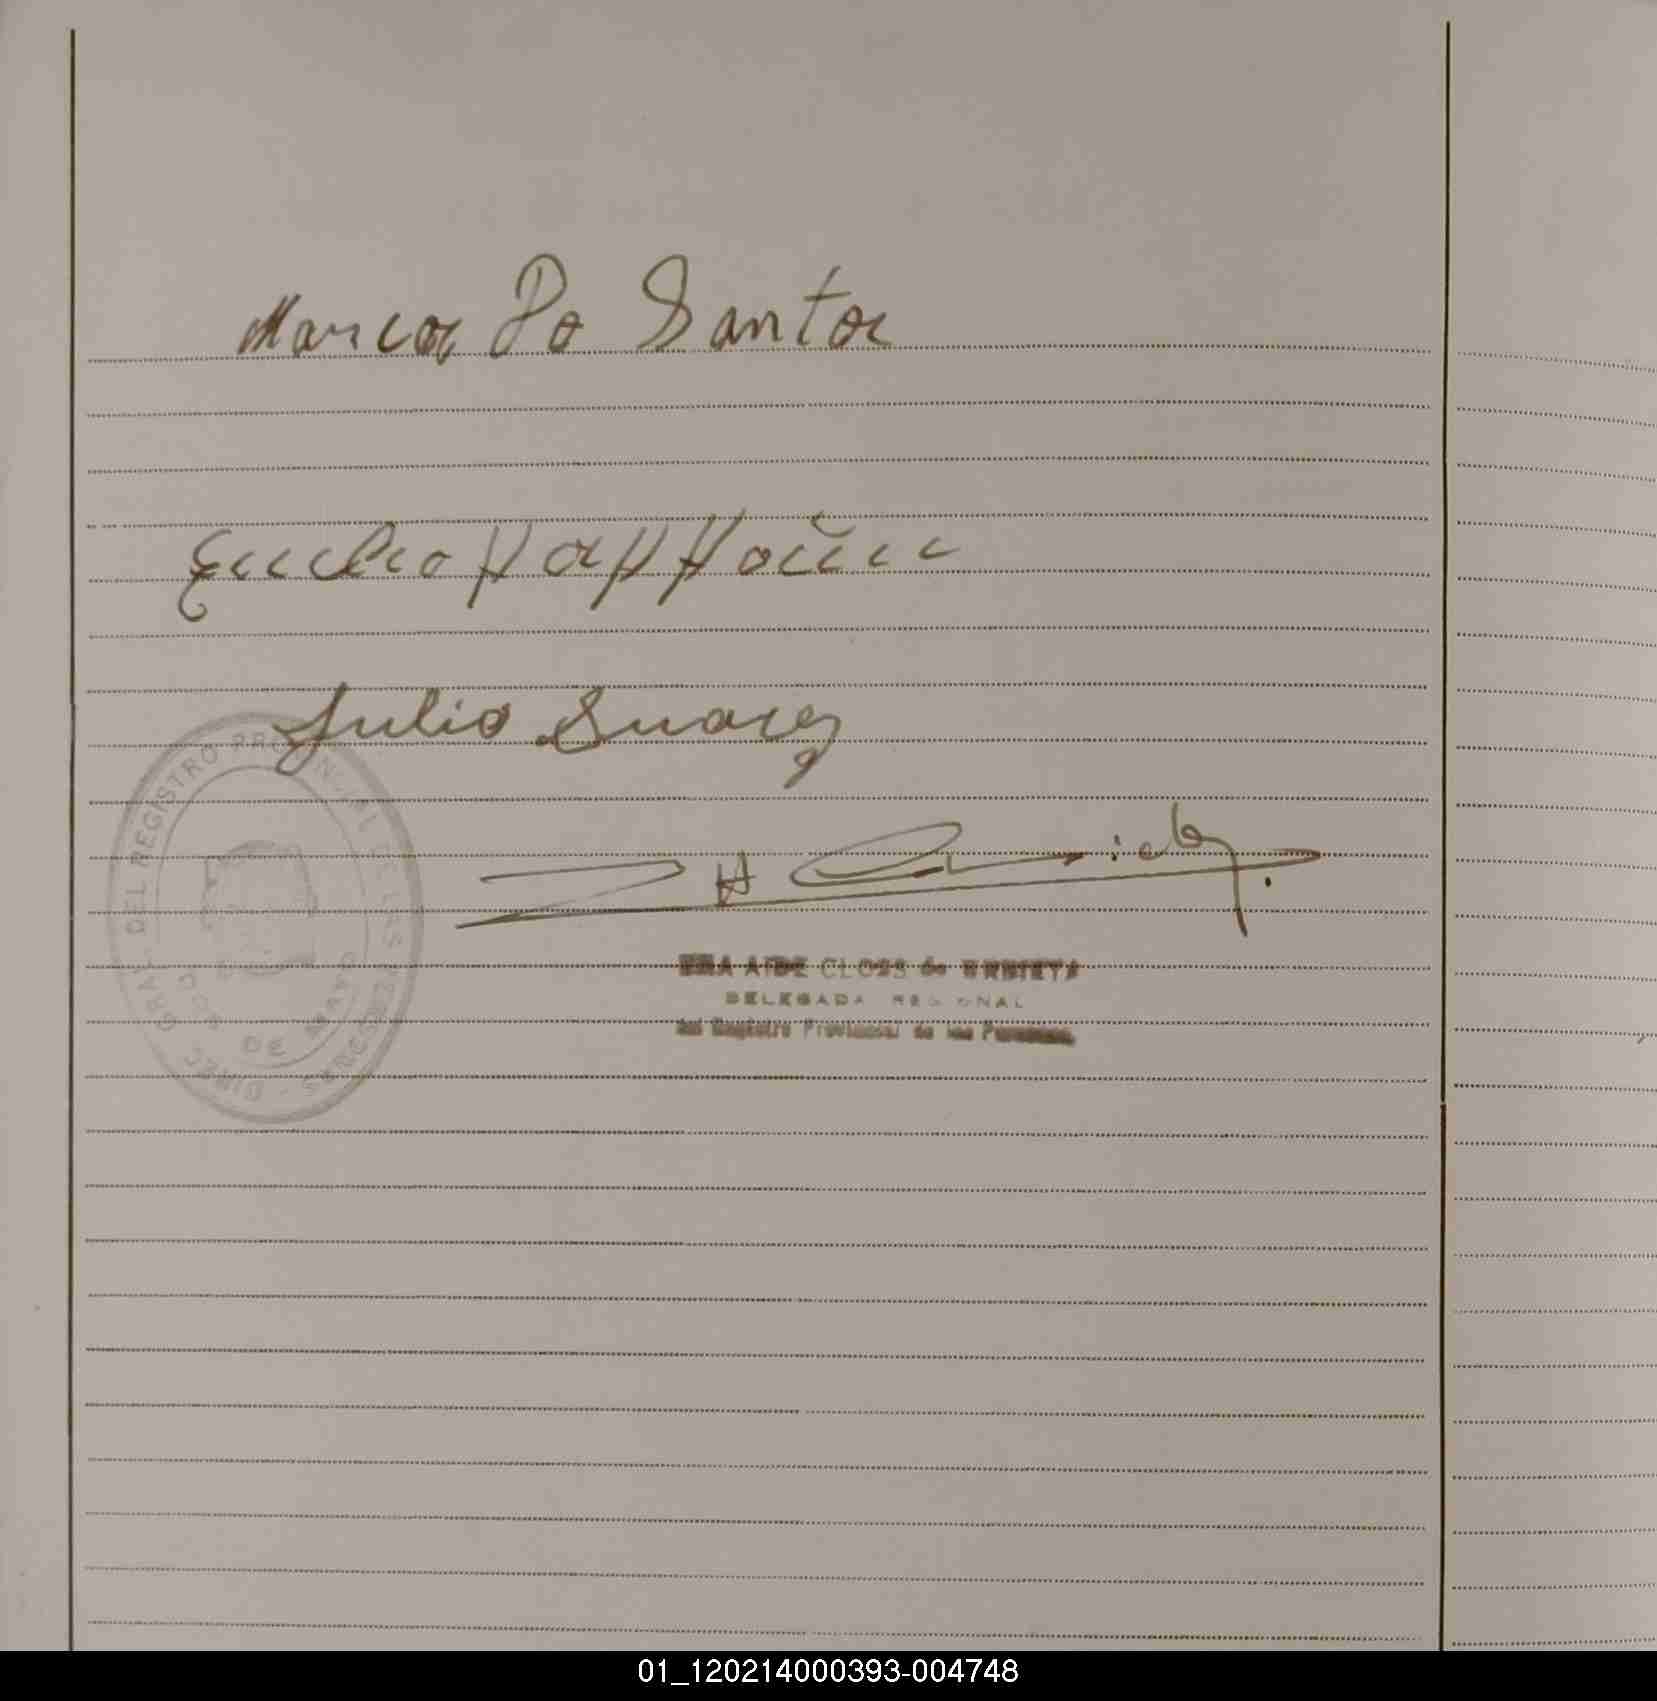 Marcos Do Santos
Julio Suarez
CLOSS de URRIETA
DELEGADA REGIONAL
del Registro Provincial de las Personas
DIREC. GRAL. DEL REGISTRO PROVINCIAL DE LAS PERSONAS
DOS DE MAYO
01_120214000393-004748